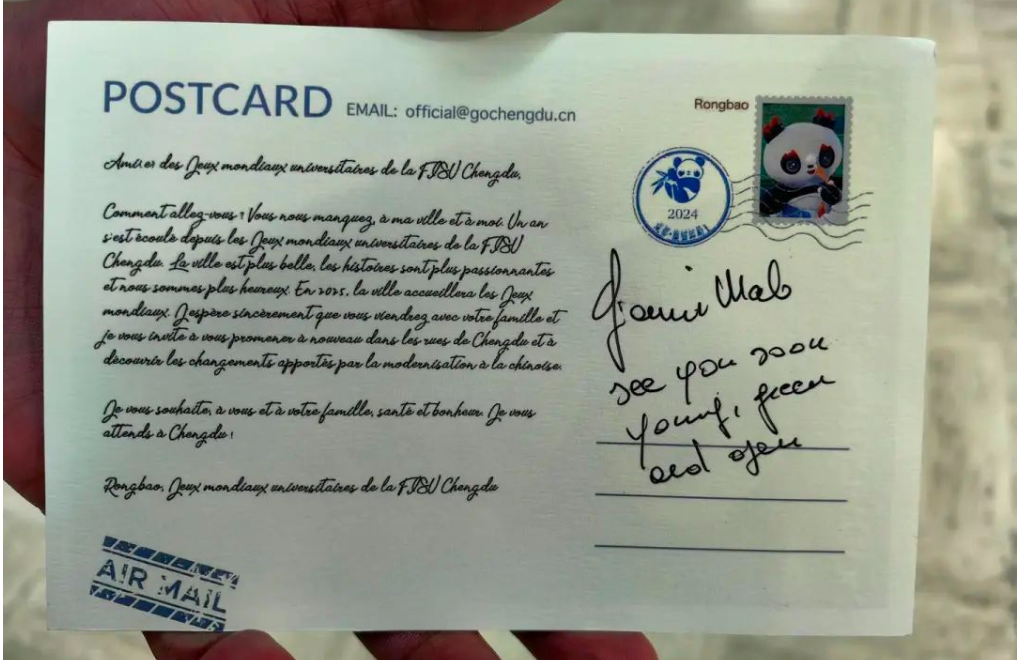 POSTCARD EMAIL: official@gochengdu.cn
Rongbao
2024
Ami.er des Jeux mondiaux universitaires de la FISU Chengdu,
Comment allez-vous ? Vous nous manquez, à ma ville et à moi. Un an
s'est écoulé depuis les Jeux mondiaux universitaires de la FISU
Chengdu. La ville est plus belle, les histoires sont plus passionnantes
et nous sommes plus heureux. En 2025, la ville accueillera les Jeux
mondiaux. J'espère sincèrement que vous viendrez avec votre famille et
je vous invite à vous promener à nouveau dans les rues de Chengdu et à
découvrir les changements apportés par la modernisation à la chinoise.
Je vous souhaite, à vous et à votre famille, santé et bonheur. Je vous
attends à Chengdu !
Rongbao, Jeux mondiaux universitaires de la FISU Chengdu
AIR MAIL
see you soon
young, green
and open